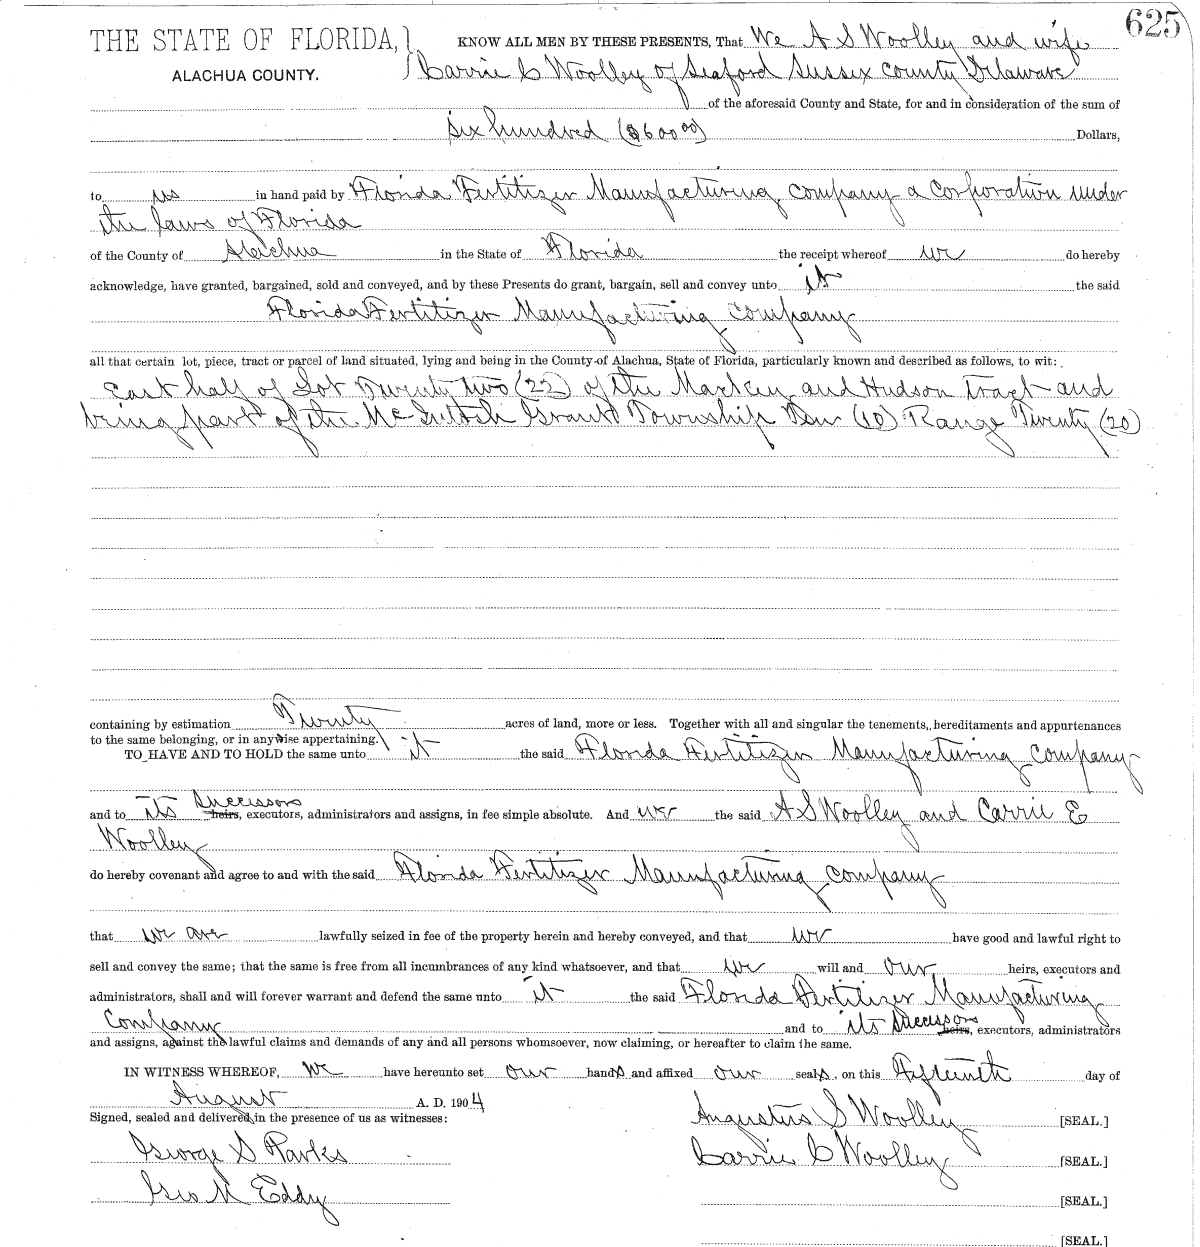 625
THE STATE OF FLORIDA,} KNOW ALL MEN BY THESE PRESENTS, That We A S Woolley and wife
ALACHUA COUNTY. Carrie C Woolley of Seaford Sussex County Delaware
of the aforesaid County and State, for and in consideration of the sum of
six hundred ($600 00) Dollars,
to us in hand paid by Florida Fertitizer Manufacturing Company a Corporation under
the laws of Florida
of the County of Alachua in the State of Florida the receipt whereof we do hereby
acknowledge, have granted, bargained, sold and conveyed, and by these Presents do grant, bargain, sell and convey unto it the said
Florida Fertitizer Manufacturing Company
all that certain lot, piece, tract or parcel of land situated, lying and being in the County of Alachua, State of Florida, particularly known and described as follows, to wit:
East half of Lot Twenty two (22) of the Mackey and Hudson Tract and
being part of the McIntosh Grant Township Ten (10) Range Twenty (20)
containing by estimation Twenty acres of land, more or less. Together with all and singular the tenements, hereditaments and appurtenances
to the same belonging, or in anywise appertaining.
TO HAVE AND TO HOLD the same unto it the said Florida Fertitizer Manufacturing Company
and to its Successors heirs, executors, administrators and assigns, in fee simple absolute. And we the said A S Woolley and Carrie E
Woolley
do hereby covenant and agree to and with the said Florida Fertitizer Manufacturing Company
that we are lawfully seized in fee of the property herein and hereby conveyed, and that we have good and lawful right to
sell and convey the same; that the same is free from all incumbrances of any kind whatsoever, and that we will and our heirs, executors and
administrators, shall and will forever warrant and defend the same unto it the said Florida Fertitizer Manufacturing
Company and to its Successors heirs, executors, administrators
and assigns, against the lawful claims and demands of any and all persons whomsoever, now claiming, or hereafter to claim the same.
IN WITNESS WHEREOF, we have hereunto set our hands and affixed our seals, on this Fifteenth day of
August A. D. 1904
Signed, sealed and delivered in the presence of us as witnesses: Augustus S Woolley [SEAL.]
George S Parks Carrie C Woolley [SEAL.]
Geo N Eddy [SEAL.]
[SEAL.]